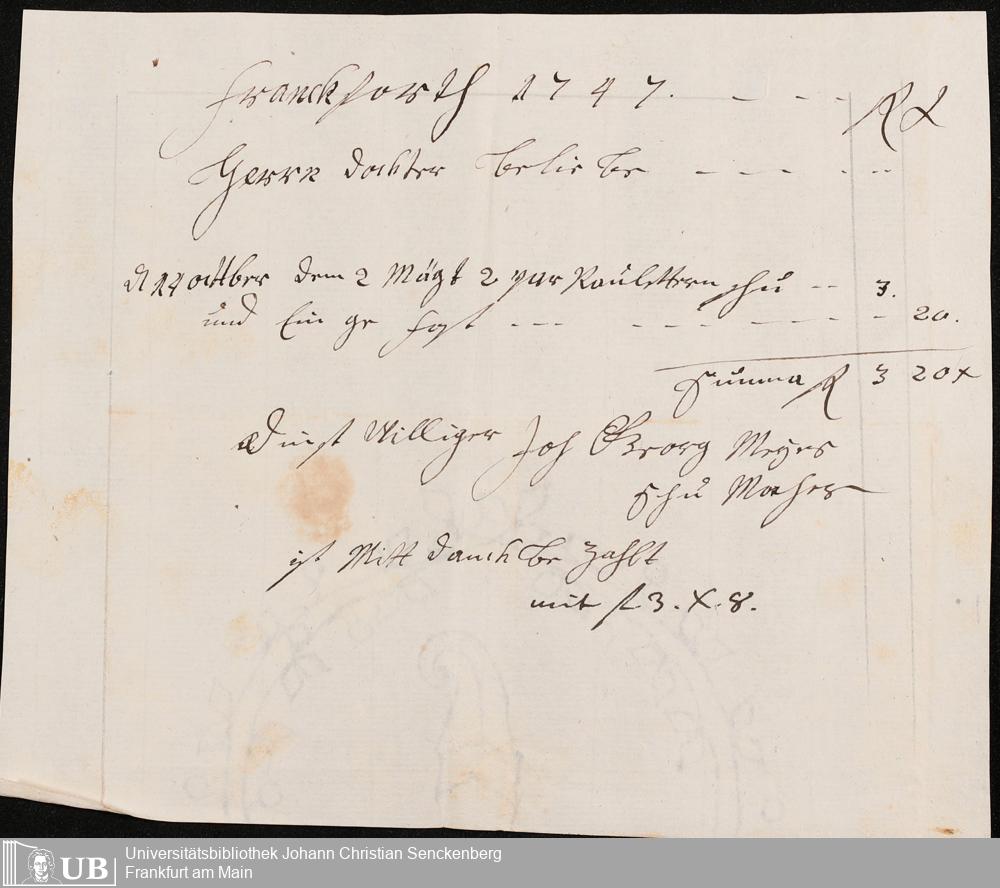 Franckforth 1747. - - - f x
Herrn Dockter beliebe - - - - - -
d 14 octtber dem 2 Mägt 2 par Raulettern schu - - 3.
und Ein ge fast - - - - - - - - - - 20.
Summa f 3 20 x
Dinst Williger Joh Georg Meyer
schu Macher
ist Mitt danck be Zahlt
mit f 3. X. 8.
UB Universitätsbibliothek Johann Christian Senckenberg
Frankfurt am Main